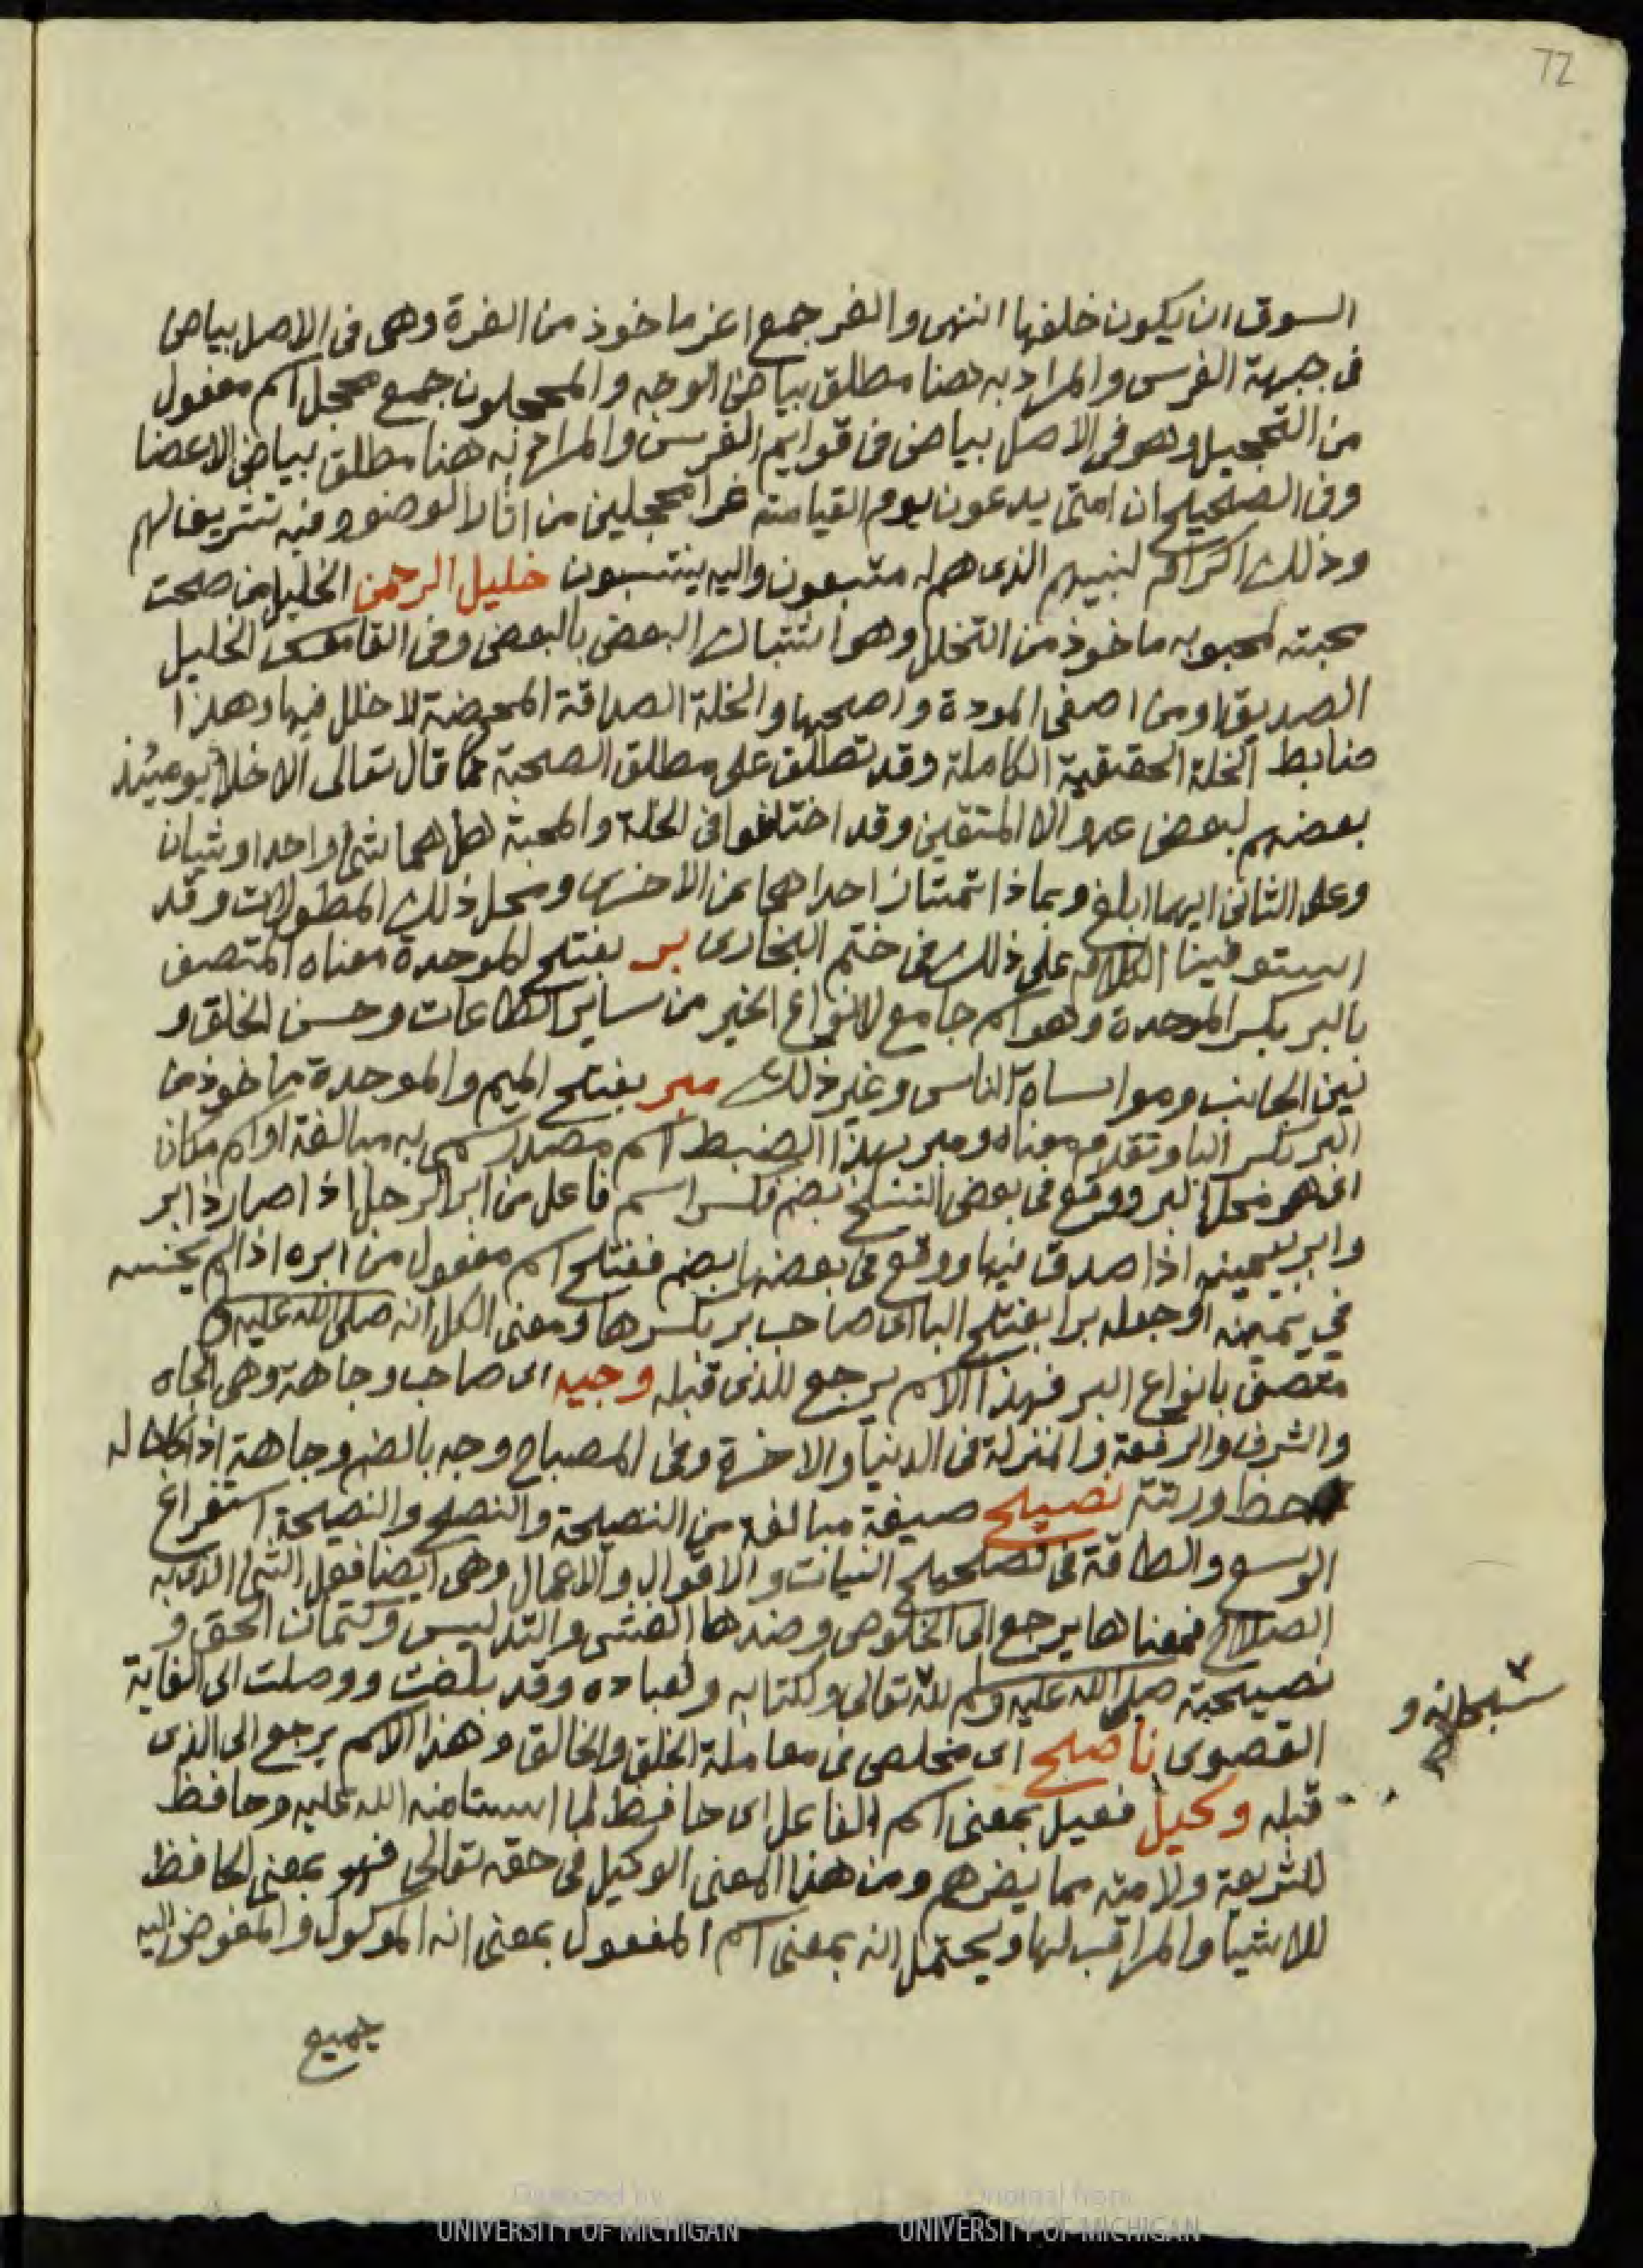 72
السوق ان يكون خلفها انتهى والغر جمع اغر ماخوذ من الغرة وهى فى الاصل بياض
فى جبهة الفرس والمراد به هنا مطلق بياض الوجه والمحجلون جمع محجل اسم مفعول
من التحجيل وهو فى الاصل بياض فى قوايم الفرس والمراد به هنا مطلق بياض الاعضا
وفى الصحيح ان امتى يدعون يوم القيامة غرا محجلين من اثار الوضوء وفيه تشريف لهم
وذلك اكرام لنبيهم الذى هم له متبعون واليه ينتسبون خليل الرحمن الخليل من صحت
محبته لمحبوبه ماخوذ من التخلل وهو اشتباك البعض بالبعض وفى القاموس الخليل
الصديق او من اصفى المودة واصحها والخلة الصداقة المحضة لا خلل فيها وهذا
ضابط الخلة الحقيقية الكاملة وقد تطلق على مطلق الصحبة كما قال تعالى الاخلا يومئذ
بعضهم لبعض عدو الا المتقين وقد اختلفوا فى الخلة والمحبة هل هما شئ واحد او شيان
وعلى الثانى ايهما ابلغ وبماذا تمتاز احداهما عن الاخرى ومحل ذلك المطولات وقد
استوفينا الكلام على ذلك فى ختم البخارى بر بفتح الموحدة معناه المتصف
بالبر بكسر الموحدة وهو اسم جامع لانواع الخير من ساير الطاعات وحسن الخلق و
لين الجانب ومواساة الناس وغير ذلك مبر بفتح الميم والموحدة ماخوذ من
البر بكسر البا وتقدم معناه ومبر بهذا الضبط اسم مصدر سمى به مبالغة او اسم مكان
اى هو محل البر ووقع فى بعض النسخ بضم فكسر اسم فاعل من ابر الرجل اذا صار ذا بر
وابر بيمينه اذا صدق فيها ووقع فى بعضها بضم ففتح اسم مفعول من ابره اذا لم يحنسه
في يمينه او جعله برا بفتح البا اى صاحب بر بكسرها ومعنى الكل انه صلى الله عليه وسلم
متصف بانواع البر فهذا الاسم يرجع للذى قبله وجيه اى صاحب وجاهة وهى الجاه
والشرف والرفعة والمنزلة فى الدنيا والاخرة وفى المصباح وجه بالضم وجاهة اذا كان له
حظ ورتبة نصيح صيغة مبالغة من النصيحة والنصح والنصيحة استفراغ
الوسع والطاقة فى تصحيح النيات والاقوال والاعمال وهى ايضا فعل الشئ الذى به
الصلاح فمعناها يرجع الى الخلوص وضدها الغش والتدليس وكتمان الحق و
نصيحته صلى الله عليه وسلم لله تعالى ولكتابه ولعباده وقد بلغت ووصلت الى الغاية
سبحانه و
القصوى ناصح اى مخلص فى معاملة الخلق والخالق وهذا الاسم يرجع الى الذى
قبله وكيل فعيل بمعنى اسم الفاعل اى حافظ لما استامنه الله عليه وحافظ
للشريعة ولامته مما يضرهم ومن هذا المعنى الوكيل فى حقه تعالى فهو بمعنى الحافظ
للاشيا والمراقب لها ويحتمل انه بمعنى اسم المفعول بمعنى انه الموكول والمفوض اليه
جميع
Digitized by Original from
UNIVERSITY OF MICHIGAN UNIVERSITY OF MICHIGAN